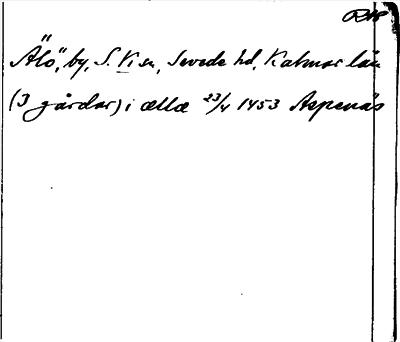 RAP
"Älö", by, S. Vi sn, Sevede hd, Kalmar län
(3 gårdar) i ælla 23/4 1453 Aspenäs